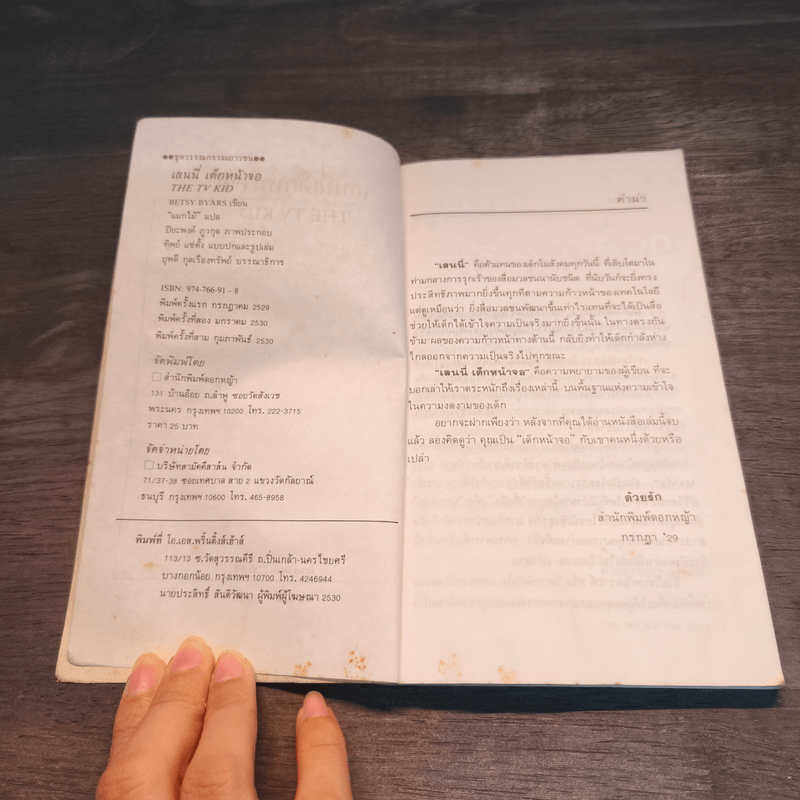 ●●ชุดวรรณกรรมเยาวชน●●
เลนนี่ เด็กหน้าจอ
THE TV KID
BETSY BYARS เขียน
"แมกไม้" แปล
ปิยะพงค์ ภูวกุล ภาพประกอบ
ทิพย์ แซ่ตั้ง แบบปกและรูปเล่ม
ยุพดี กุลเรืองทรัพย์ บรรณาธิการ
ISBN: 974-766-91-8
พิมพ์ครั้งแรก กรกฎาคม 2529
พิมพ์ครั้งที่สอง มกราคม 2530
พิมพ์ครั้งที่สาม กุมภาพันธ์ 2530
จัดพิมพ์โดย
สำนักพิมพ์ดอกหญ้า
131 บ้านอ้อย ถ.ลำพู ซอยวัดสังเวช
พระนคร กรุงเทพฯ 10200 โทร. 222-3715
ราคา 25 บาท
จัดจำหน่ายโดย
บริษัทสามัคคีสาส์น จำกัด
71/37-38 ซอยเทศบาล สาย 2 แขวงวัดกัลยาณ์
ธนบุรี กรุงเทพฯ 10600 โทร. 465-8958
พิมพ์ที่ โอ.เอส.พริ้นติ้งส์เฮ้าส์
113/13 ซ.วัดสุวรรณคีรี ถ.ปิ่นเกล้า-นครไชยศรี
บางกอกน้อย กรุงเทพฯ 10700 โทร. 4246944
นายประสิทธิ์ สันติวัฒนา ผู้พิมพ์ผู้โฆษณา 2530
คำนำ
"เลนนี่" คือตัวแทนของเด็กในสังคมทุกวันนี้ ที่เติบโตมาใน
ท่ามกลางการรุกเร้าของสื่อมวลชนนานับชนิด ที่นับวันก็จะยิ่งทรง
ประสิทธิภาพมากยิ่งขึ้นทุกทีตามความก้าวหน้าของเทคโนโลยี
แต่ดูเหมือนว่า ยิ่งสื่อมวลชนพัฒนาขึ้นเท่าไรแทนที่จะได้เป็นสื่อ
ช่วยให้เด็กได้เข้าใจความเป็นจริงมากยิ่งขึ้นนั้น ในทางตรงกัน
ข้าม ผลของความก้าวหน้าทางด้านนี้ กลับยิ่งทำให้เด็กกำลังห่าง
ไกลออกจากความเป็นจริงไปทุกขณะ
"เลนนี่ เด็กหน้าจอ" คือความพยายามของผู้เขียน ที่จะ
บอกเล่าให้เราตระหนักถึงเรื่องเหล่านี้ บนพื้นฐานแห่งความเข้าใจ
ในความงดงามของเด็ก
อยากจะฝากเพียงว่า หลังจากที่คุณได้อ่านหนังสือเล่มนี้จบ
แล้ว ลองคิดดูว่า คุณเป็น "เด็กหน้าจอ" กับเขาคนหนึ่งด้วยหรือ
เปล่า
ด้วยรัก
สำนักพิมพ์ดอกหญ้า
กรกฎา '29